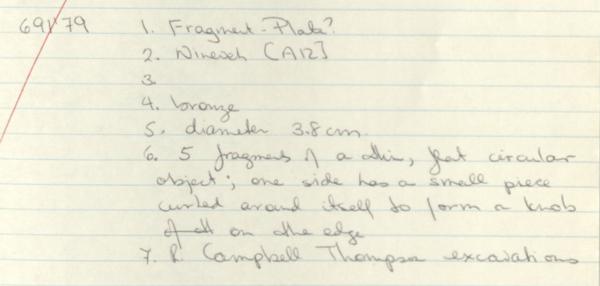 691'79 1. Fragment - Plate?
2. Nineveh [A12]
3.
4. bronze
5. diameter 3.8cm.
6. 5 fragments of a thin, flat circular
object; one side has a small piece
curled around itself to form a knob
on the edge
7. R. Campbell Thompson excavations